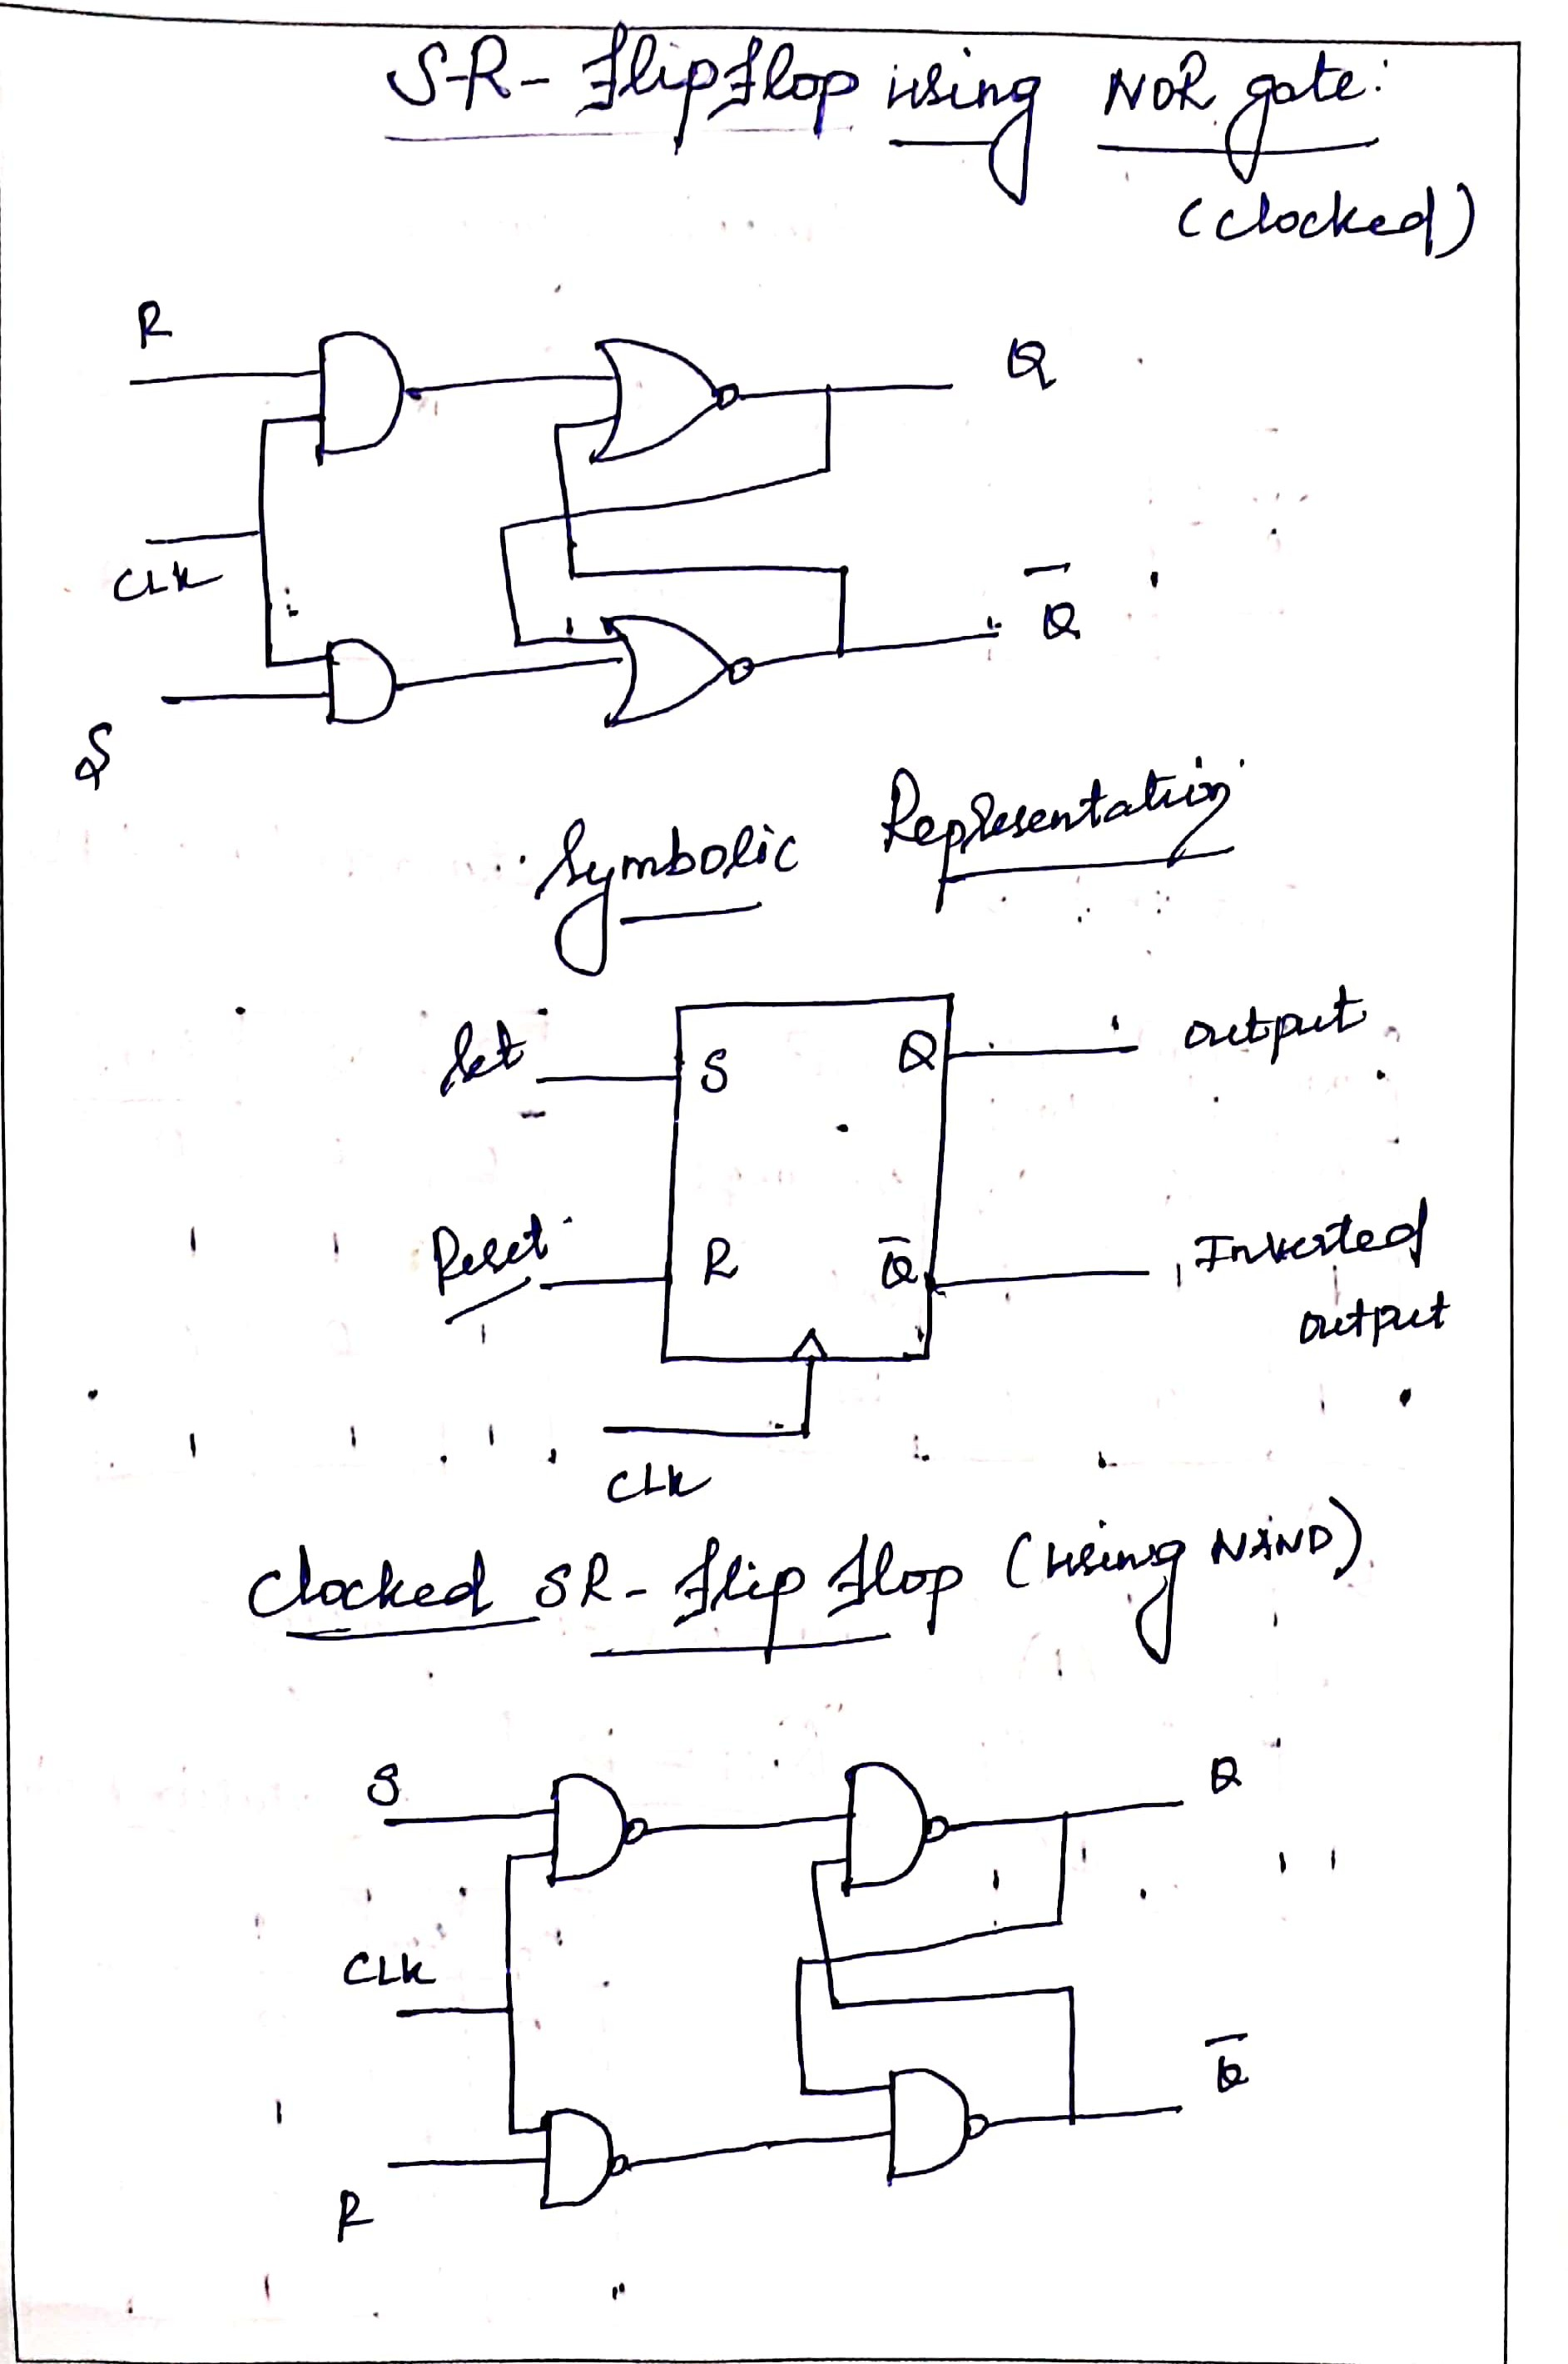 S-R- Flip Flop using NOR gate:
(clocked)
R
Q
CLK
Q̅
S
Symbolic Representation
Set
S
Q
output
Reset
R
Q̅
Inverted
output
CLK
Clocked SR- Flip Flop (using NAND)
S
Q
CLK
Q̅
R